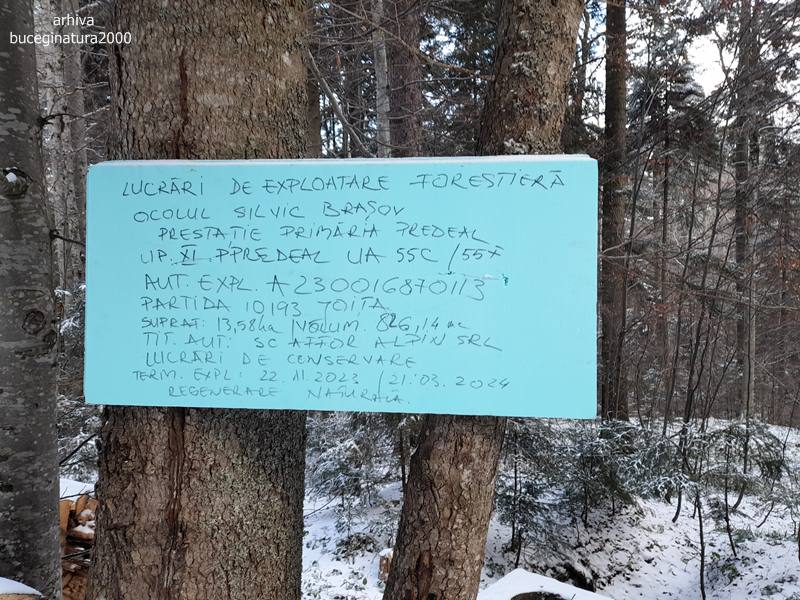 arhiva
buceginatura2000
LUCRĂRI DE EXPLOATARE FORESTIERĂ
OCOLUL SILVIC BRAȘOV
PRESTAȚIE PRIMĂRIA PREDEAL
UP. XI PPREDEAL UA 55C / 55F
AUT. EXPL. A230016870113
PARTIDA 10193 JOIȚA
SUPRAF: 13,58ha /VOLUM. 826,14 mc
TIT. AUT: SC AFFOR ALPIN SRL
LUCRĂRI DE CONSERVARE
TERM. EXPL: 22.11.2023 / 21.03.2024
REGENERARE NATURALĂ.